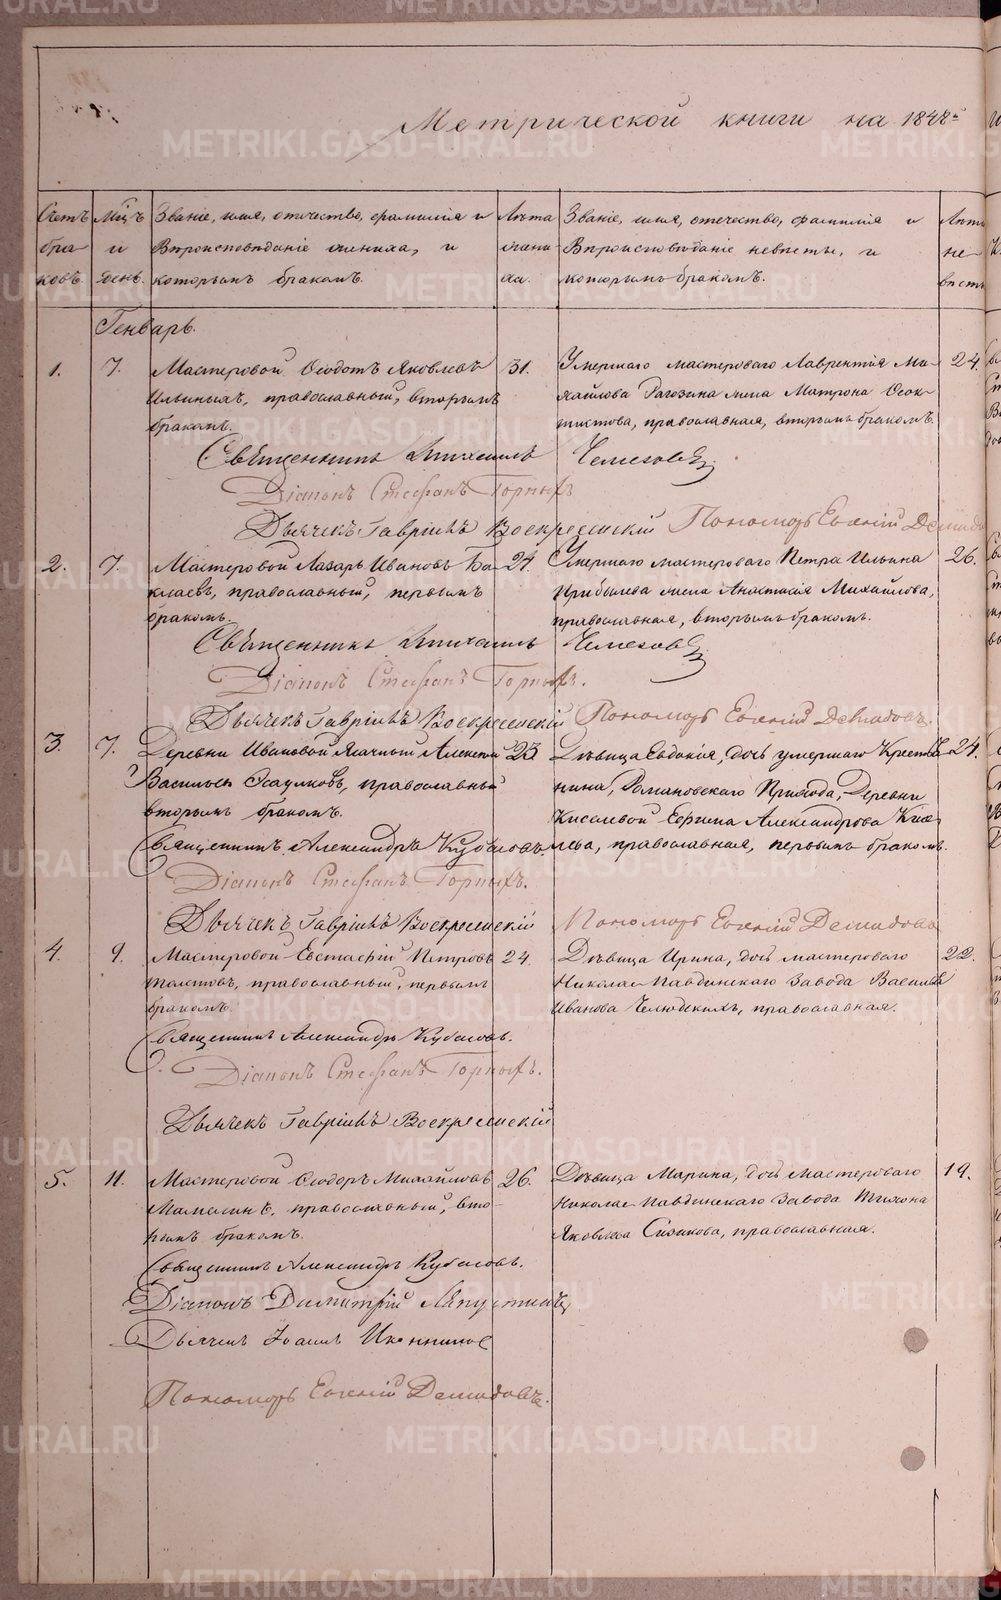 Метрической книги на 1848й
Счетъ
бра
ковъ.
Мцъ
и
день.
Званіе, имя, отчество, фамилія и
Вѣроисповѣданіе жениха, и
которымъ бракомъ.
Лѣта
жени
ха.
Званіе, имя, отечество, фамилія и
Вѣроисповѣданіе невѣсты, и
которымъ бракомъ.
Лѣта
не-
вѣсты
Генварь.
1. 7. Мастеровой Ѳеодотъ Яковлевъ 31. Умершаго мастероваго Лаврентія Ми- 24.
Ильиныхъ, православный, вторымъ хайлова Рагозина жена Матрона Ѳеок-
бракомъ. тистова, православная, вторымъ бракомъ.
Священникъ Михаилъ Чемезовъ
Діаконъ Стефанъ Горныхъ
Дьячекъ Гавріилъ Воскресенскій Пономарь Евгеній Демидовъ
2. 7. Мастеровой Лазарь Ивановъ Ба- 24. Умершаго мастероваго Петра Ильина 26.
клаевъ, православный, первымъ Прибылева жена Анастасія Михайлова,
бракомъ. православная, вторымъ бракомъ.
Священникъ Михаилъ Чемезовъ
Діаконъ Стефанъ Горныхъ.
Дьячекъ Гавріилъ Воскресенскій Пономарь Евгеній Демидовъ.
3. 7. Деревни Ивановой Ясачный Алексѣй 23 Дѣвица Евдокія, дочь умершаго Крестья 24.
Васильевъ Есаулковъ, православный нина, Романовскаго Прихода, Деревни
вторымъ бракомъ. Киселевой Ефима Александрова Кисе
Священникъ Александръ Кубасовъ. лева, православная, первымъ бракомъ.
Діаконъ Стефанъ Горныхъ.
Дьячекъ Гавріилъ Воскресенскій Пономарь Евгеній Демидовъ
4. 9. Мастеровой Евстафій Петровъ 24. Дѣвица Ирина, дочь мастероваго 22.
Толстовъ, православный, первымъ Николае-Павдинскаго Завода Василья
бракомъ. Иванова Челюдскихъ, православная.
Священникъ Александръ Кубасовъ.
Діаконъ Стефанъ Горныхъ.
Дьячекъ Гавріилъ Воскресенскій
5. 11. Мастеровой Ѳеодоръ Михайловъ 26. Дѣвица Марина, дочь мастероваго 19.
Мамаминъ, православный, вто- Николае-Павдинскаго Завода Тихона
рымъ бракомъ. Яковлева Сизикова, православная.
Священникъ Александръ Кубасовъ.
Діаконъ Димитрій Ляпустинъ,
Дьячекъ Іоаннъ Иконниковъ
Пономарь Евгеній Демидовъ.